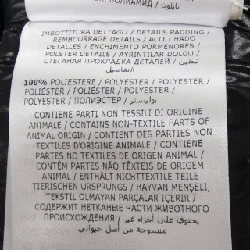 ПОЛИАМИД /
IMBOTTITURA DETTAGLI / DETAILS PADDING /
REMBOURRAGE DETAILS / ACOLCHADO
DETALLES / ENCHIMENTO PORMENORES /
POLSTER DETAILS / AYRINTILAR DOLGU /
СТЕГАНАЯ ПРОКЛАДКА ДЕТАЛЕЙ /
100% POLIESTERE / POLYESTER / POLYESTER /
POLIÉSTER / POLIÉSTER / POLYESTER /
POLYESTER / ПОЛИЭСТЕР / بوليستر
CONTIENE PARTI NON TESSILI DI ORIGINE
ANIMALE / CONTAINS NON-TEXTILE PARTS OF
ANIMAL ORIGIN / CONTIENT DES PARTIES NON
TEXTILES D'ORIGINE ANIMALE / CONTIENE
PARTES NO TEXTILES DE ORIGEN ANIMAL /
CONTÉM PARTES NÃO TÊXTEIS DE ORIGEM
ANIMAL / ENTHÄLT NICHTTEXTILE TEILE
TIERISCHEN URSPRUNGS / HAYVAN MENŞELİ,
TEKSTİL OLMAYAN PARÇALAR İÇERİR /
СОДЕРЖИТ НЕТКАНЫЕ ЧАСТИ ЖИВОТНОГО
ПРОИСХОЖДЕНИЯ / يحتوي على أجزاء غير
منسوجة من أصل حيواني